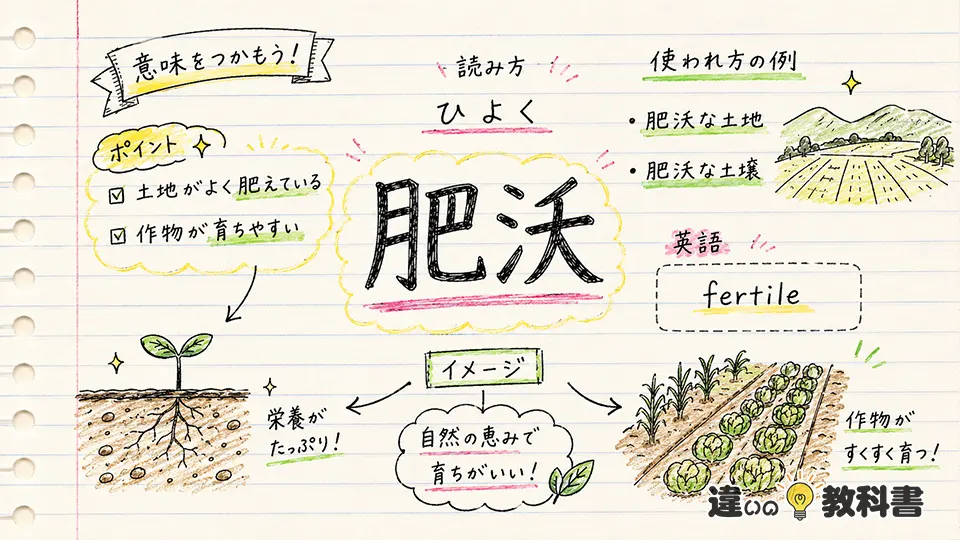 意味をつかもう!
ポイント
土地がよく肥えている
作物が育ちやすい
読み方
ひよく
肥沃
使われ方の例
・肥沃な土地
・肥沃な土壌
英語
fertile
イメージ
栄養が
たっぷり!
自然の恵みで
育ちがいい!
作物が
すくすく育つ!
違いの教科書